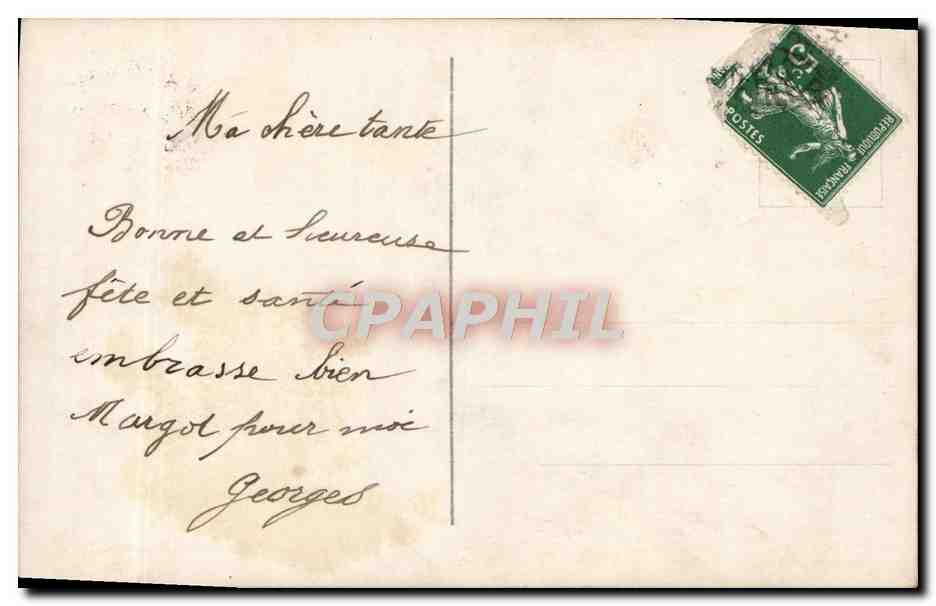 Ma chère tante
Bonne et heureuse
fête et santé
embrasse bien
Margot pour moi
Georges
5c
POSTES
REPUBLIQUE FRANÇAISE
CPAPHIL